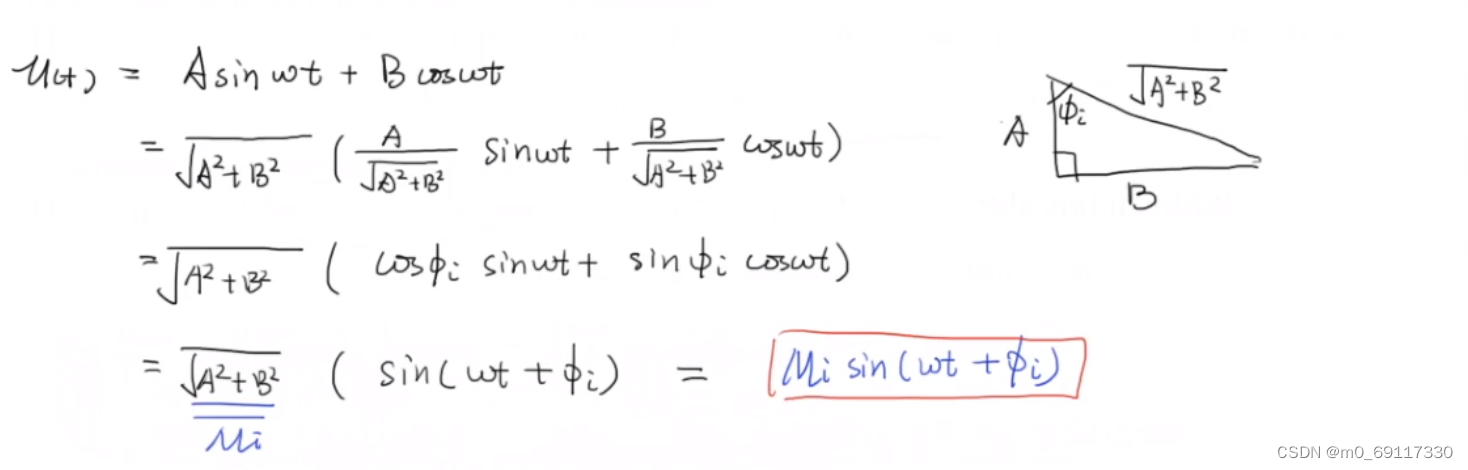 u(t) = A sin wt + B cos wt
= √A²+B² ( A/√A²+B² sin wt + B/√A²+B² cos wt)
= √A²+B² ( cosϕi sin wt + sinϕi cos wt)
= √A²+B² ( sin( wt + ϕi) = Mi sin( wt + ϕi)
Mi
√A²+B²
ϕi
A
B
CSDN @m0_69117330